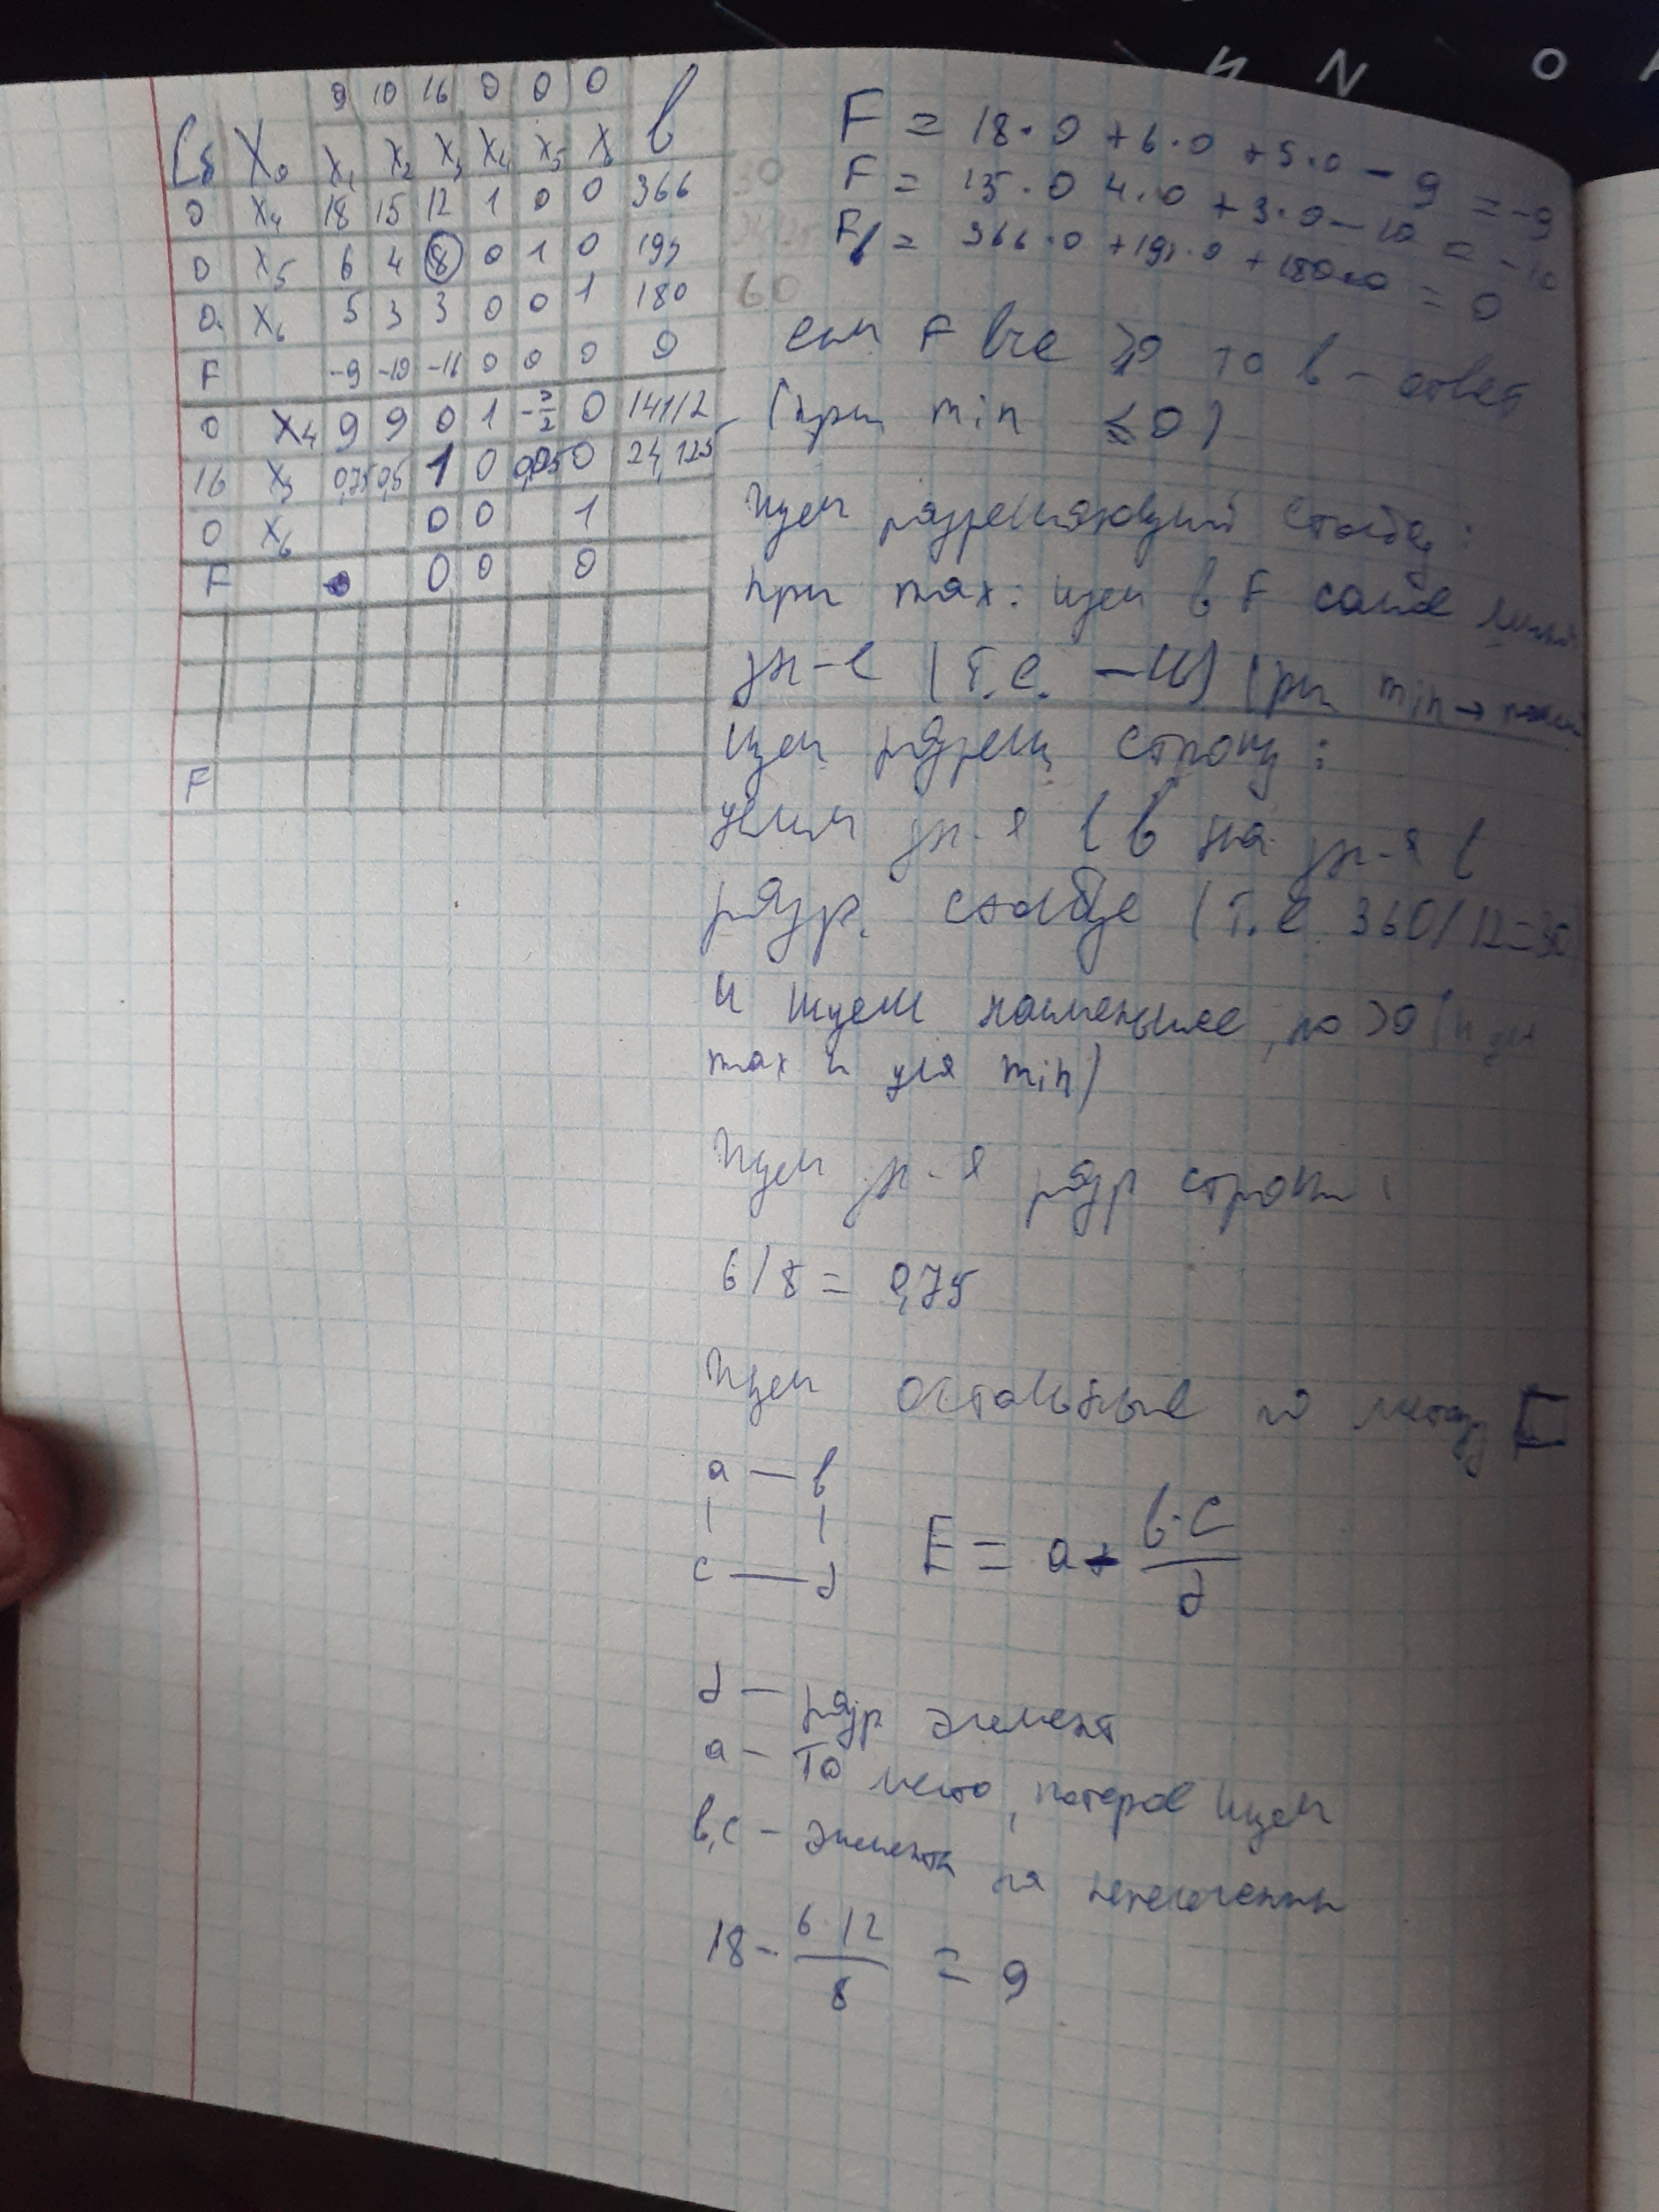 9 10 16 0 0 0
Сб X₀ X₁ X₂ X₃ X₄ X₅ X₆ b
0 X₄ 18 15 12 1 0 0 366
0 X₅ 6 4 8 0 1 0 193
0 X₆ 5 3 3 0 0 1 180
F -9 -10 -16 0 0 0 0
0 X₄ 9 9 0 1 -3/2 0 141/2
16 X₃ 0,75 0,5 1 0 0 24,125
0 X₆ 0 0 1
F 0 0 0
F
30
24,125
60
F = 18·0 + 6·0 + 5·0 - 9 = -9
F = 15·0 4·0 + 3·0 - 10 = -10
Fb = 366·0 + 193·0 + 180·0 = 0
если F все ⩾0 то b - ответ
(при min ⩽0)
Ищем разрешающий столбец:
при max: ищем в F самое
зн-е (т.е. -16) (при min →
ищем разреш строку:
делим зн-я в b на зн-я в
разр. столбце (т.е. 360/12=30
и ищем наименьшее, но >0 (и для
max и для min)
Ищем зн-я разр строки:
6/8 = 0,75
Ищем остальные по методу
a — b
| |
c — d
E = a - b·c/d
d - разр элемент
a - то место, которое ищем
b,c - элементы на пересечении
18 - 6·12/8 = 9
И N O